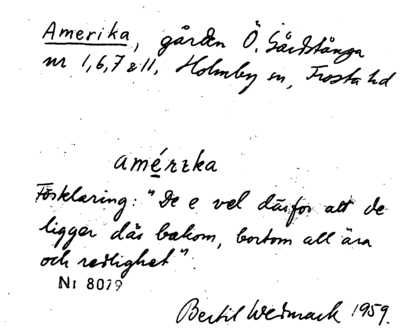 Amerika, gården Ö. Gårdstånga
nr 1,6,7 & 11, Holmby sn, Frosta hd
amérɪka
Förklaring: "De e vel därför att de
ligger där bakom, bortom all ära
och redlighet".
Nr 8079
Bertil Wedmark 1959.